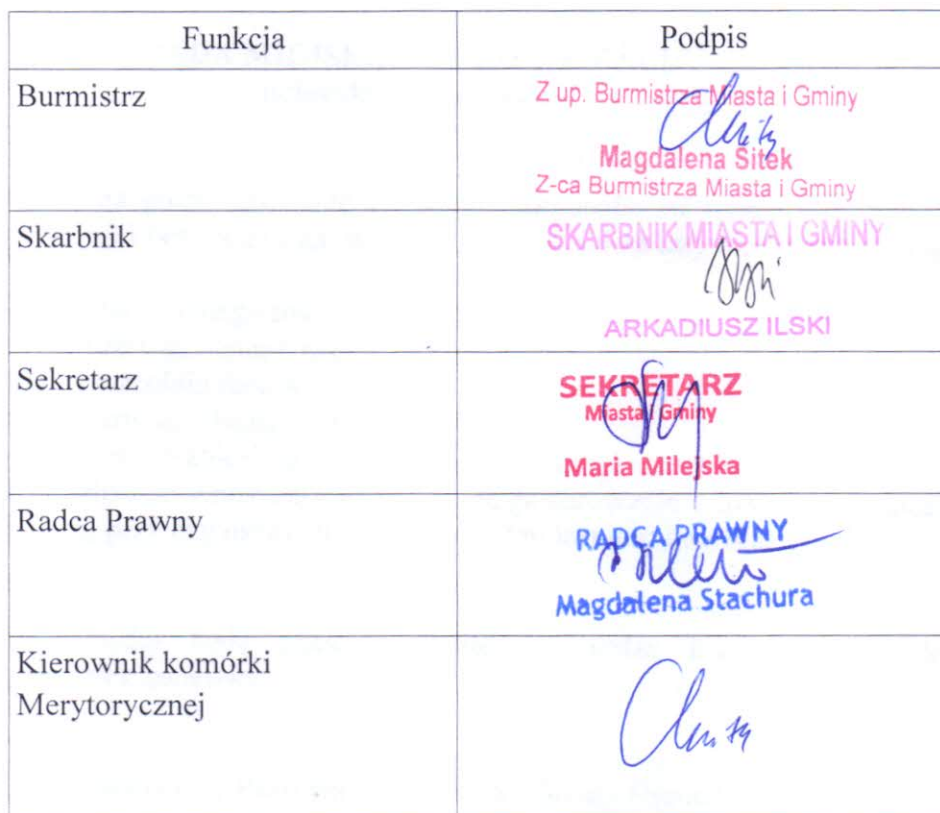 Funkcja
Podpis
Burmistrz
Z up. Burmistrza Miasta i Gminy
Magdalena Sitek
Z-ca Burmistrza Miasta i Gminy
Skarbnik
SKARBNIK MIASTA I GMINY
ARKADIUSZ ILSKI
Sekretarz
SEKRETARZ
Miasta i Gminy
Maria Milejska
Radca Prawny
RADCA PRAWNY
Magdalena Stachura
Kierownik komórki
Merytorycznej